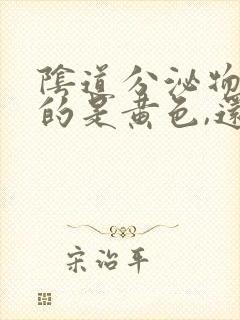 陰道分泌物
的是黃色,還
宋治平